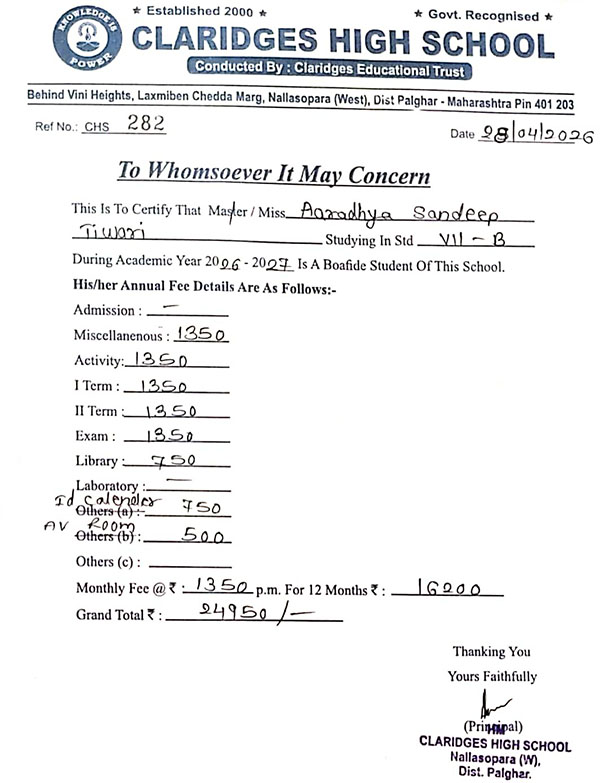 ★ Established 2000 ★
★ Govt. Recognised ★
KNOWLEDGE IS POWER
CLARIDGES HIGH SCHOOL
Conducted By : Claridges Educational Trust
Behind Vini Heights, Laxmiben Chedda Marg, Nallasopara (West), Dist Palghar - Maharashtra Pin 401 203
Ref No.: CHS 282
Date 28/04/2026
To Whomsoever It May Concern
This Is To Certify That Master / Miss Aaradhya Sandeep
Tiwari Studying In Std VII - B
During Academic Year 2026 - 2027 Is A Boafide Student Of This School.
His/her Annual Fee Details Are As Follows:-
Admission : —
Miscellanenous : 1350
Activity: 1350
I Term : 1350
II Term : 1350
Exam : 1350
Library : 750
Laboratory : —
Id Calender
Others (a) :- 750
AV Room
Others (b) : 500
Others (c) :
Monthly Fee @ ₹ : 1350 p.m. For 12 Months ₹ : 16200
Grand Total ₹ : 24950 /—
Thanking You
Yours Faithfully
(Principal)
HM
CLARIDGES HIGH SCHOOL
Nallasopara (W),
Dist. Palghar.